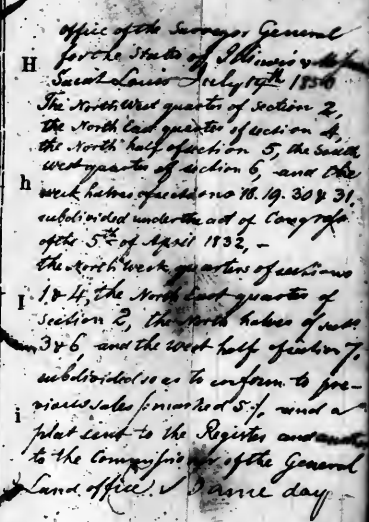 office of the Surveyor General
H for the States of Illinois &
Saint Louis July 17th 1850
The North West quarter of section 2,
the North East quarter of section 4,
the North half of section 5, the South
West quarter of section 6, and the
h west halves of sections 18. 19. 30 & 31
subdivided under the act of Congress
of the 5th of April 1832, –
the North West quarters of sections
I 1 & 4, the North East quarter of
section 2, the North halves of secs
3 & 6 and the west half of section 7,
subdivided so as to conform to pre-
vious sales (marked S), and a
i plat sent to the Register and another
to the Commissioner of the General
Land office. Same day